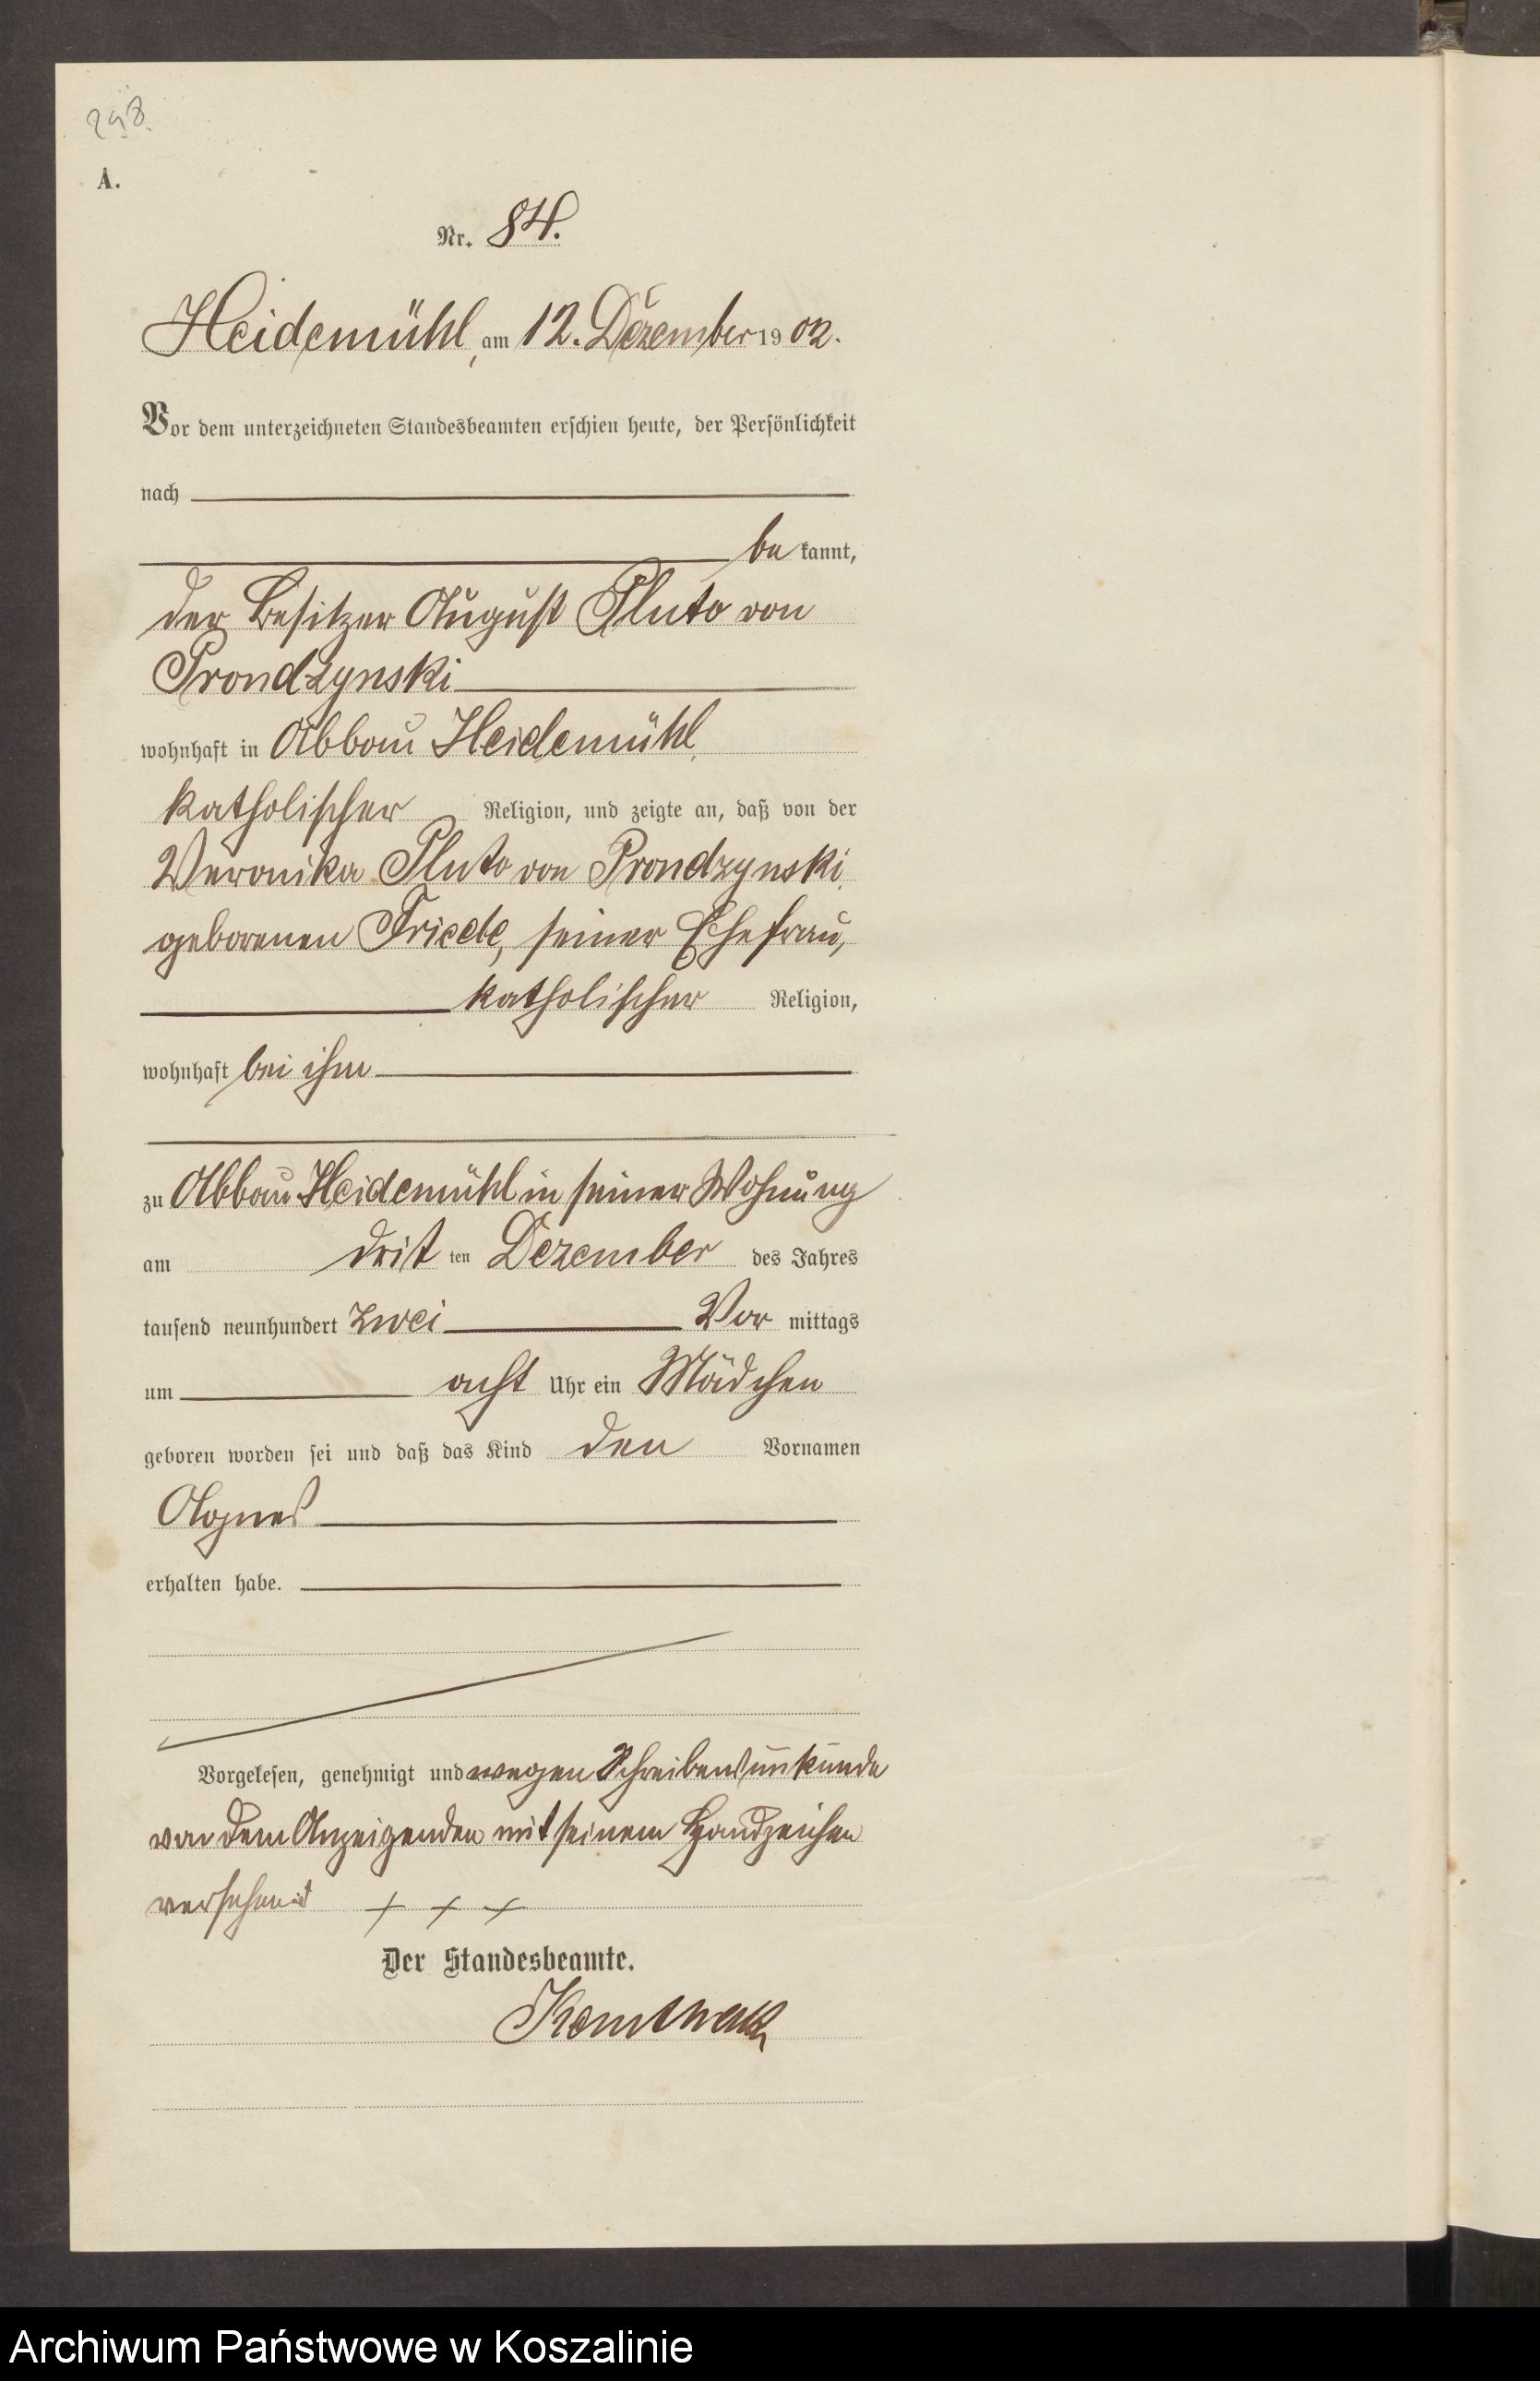 298.
A.
Nr. 84.
Heidemühl, am 12. Dezember 1902.
Vor dem unterzeichneten Standesbeamten erschien heute, der Persönlichkeit
nach
be kannt,
der Besitzer August Pluto von
Prondzynski
wohnhaft in Abbau Heidemühl,
katholischer Religion, und zeigte an, daß von der
Veronika Pluto von Prondzynski,
geborenen Friede, seiner Ehefrau,
katholischer Religion,
wohnhaft bei ihm
zu Abbau Heidemühl in seiner Wohnung
am drit ten Dezember des Jahres
tausend neunhundert zwei Vor mittags
um acht Uhr ein Mädchen
geboren worden sei und daß das Kind den Vornamen
Agnes
erhalten habe.
Vorgelesen, genehmigt und wegen Schreibensunkunde
von dem Anzeigenden mit seinem Handzeichen
versehen + + +
Der Standesbeamte.
Archiwum Państwowe w Koszalinie